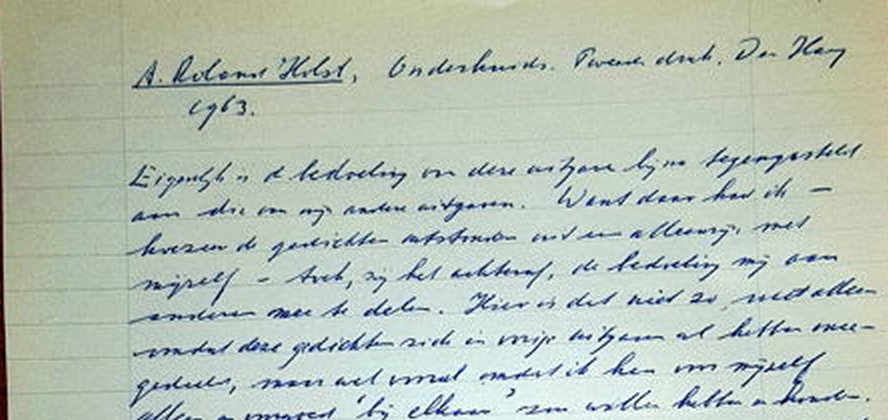 A. Roland Holst, Onderhuids. Tweede druk. Den Haag
1963.
Eigenlijk is de bedoeling van deze uitgave bijna tegengesteld
aan die van mijn andere uitgaven. Want daar had ik –
hoezeer de gedichten ontstonden uit een alleenzijn met
mijzelf – toch, zij het achteraf, de bedoeling mij aan
anderen mee te delen. Hier is dat niet zo, niet alleen
omdat deze gedichten zich in vorige uitgaven al hebben mee-
gedeeld, maar wel vooral omdat ik hen voor mijzelf
alleen en 'bij elkaar' zou willen hebben en houden.